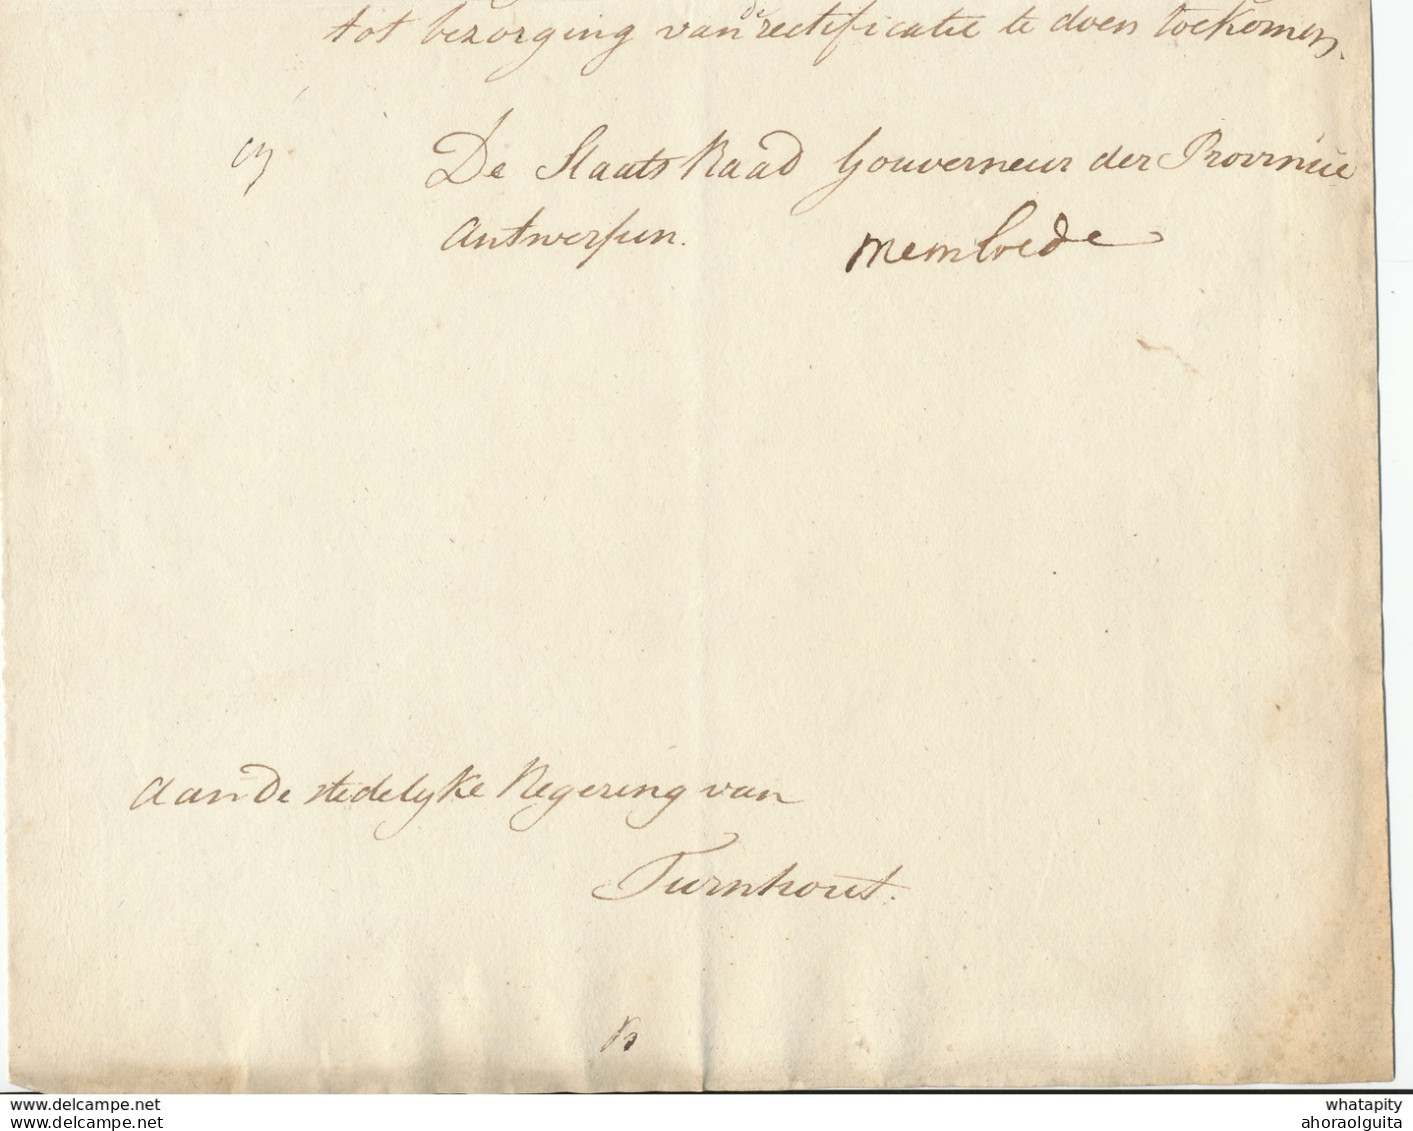 tot bezorging van de rectificatie te doen toekomen.
De Staats Raad Gouverneur der Provincie
Antwerpen.
Aan De stedelyke Regering van
Turnhout.
www.delcampe.net
www.delcampe.net
whatapity
ahoraolguita